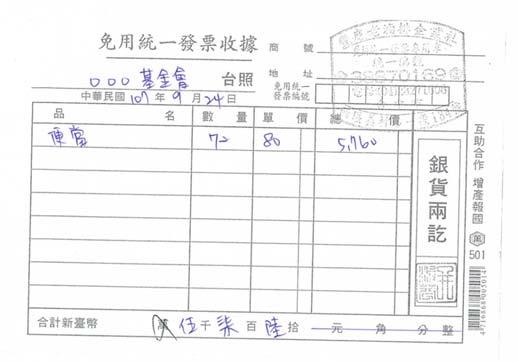 免用統一發票收據
商號
地址
免用統一
發票編號
○○○ 基金會 台照
中華民國 107 年 9 月 24 日
品名 數量 單價 總價
便當 72 80 5,760
銀貨兩訖
合計新臺幣 萬 伍 千 柒 百 陸 拾 元 角 分 整
互助合作 增產報國
萬
501